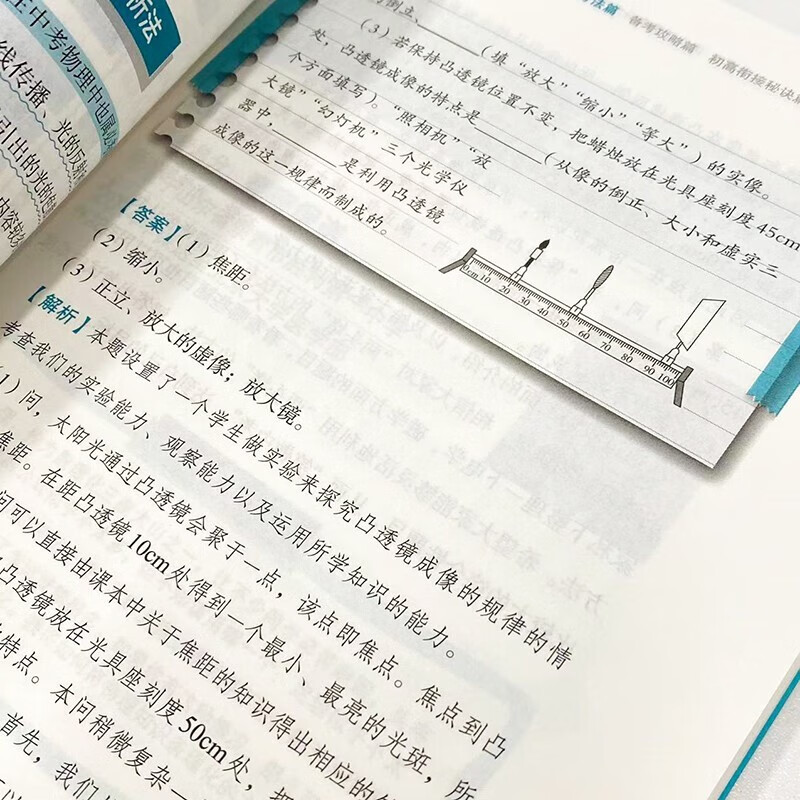 析法
中考物理中也属
线传播、光的反射
引出的光的
法篇 备考攻略篇 初高衔接秘诀
倒立、______(填“放大”“缩小”“等大”)的实像。
(3)若保持凸透镜位置不变,把蜡烛放在光具座刻度45cm
处,凸透镜成像的特点是______(从像的倒正、大小和虚实三
个方面填写)。“照相机”“放
大镜”“幻灯机”三个光学仪
器中,______是利用凸透镜
成像的这一规律而制成的。
0cm 10 20 30 40 50 60 70 80 90 100
【答案】(1)焦距。
(2)缩小。
(3)正立、放大的虚像;放大镜。
【解析】本题设置了一个学生做实验来探究凸透镜成像的规律的情
考查我们的实验能力、观察能力以及运用所学知识的能力。
1)问,太阳光通过凸透镜会聚于一点,该点即焦点。焦点到凸
焦距。在距凸透镜10cm处得到一个最小、最亮的光斑,所
问可以直接由课本中关于焦距的知识得出相应的
凸透镜放在光具座刻度50cm处,
特点。本问稍微复杂一
首先,我们